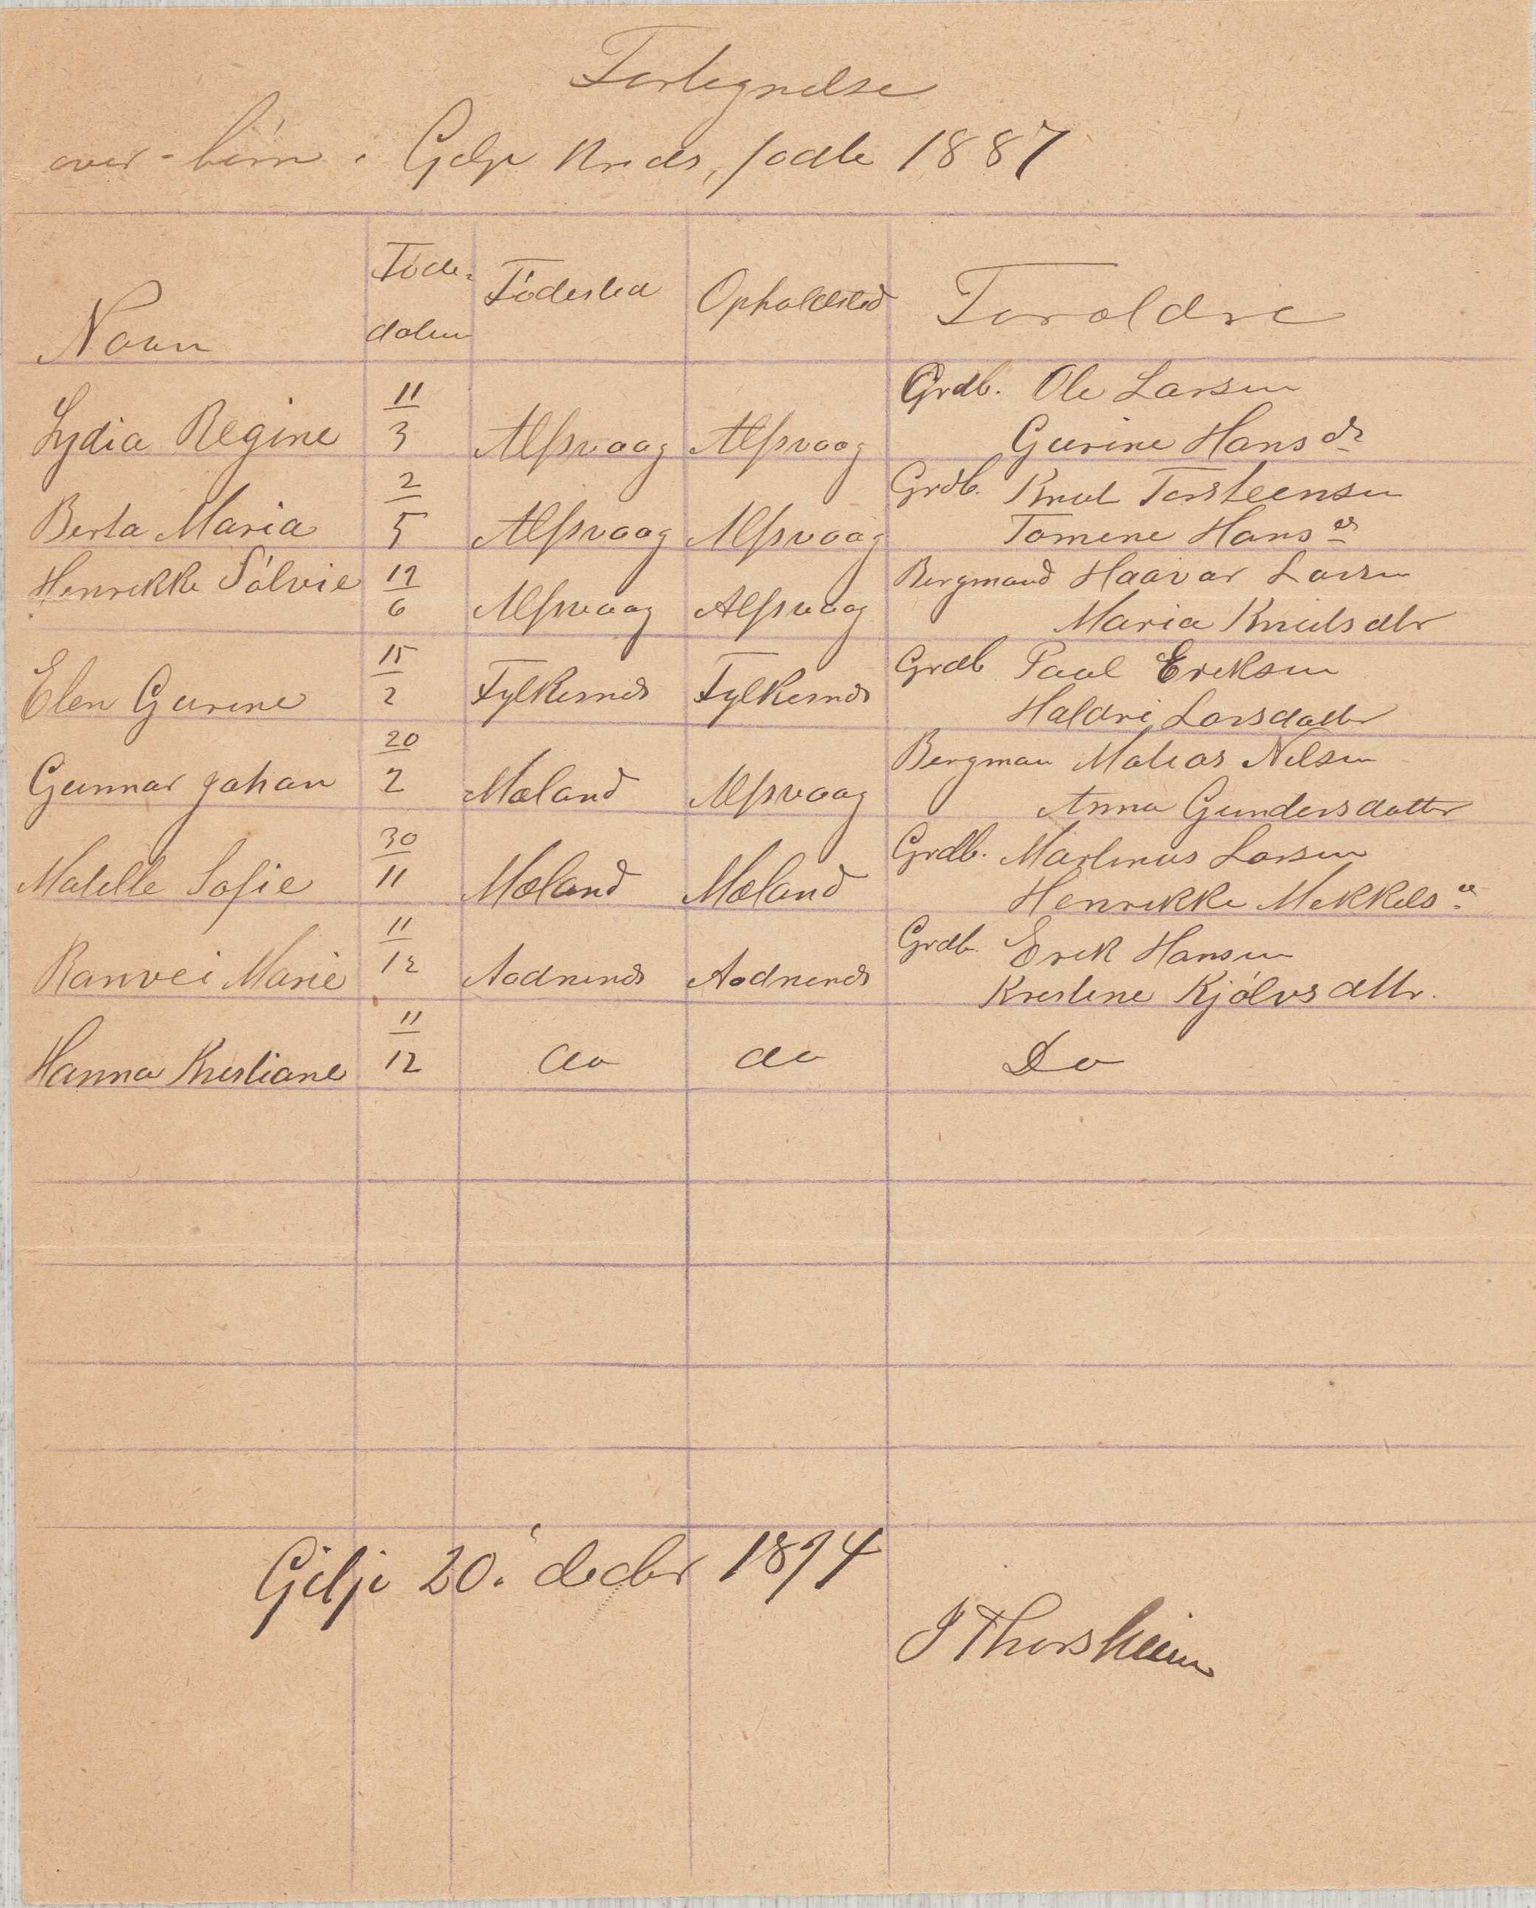 Fortegnelse
over børn i Gilje Kreds, fødte 1887
Navn
Føde-
datum
Fødested
Opholdsted
Forældre
Lydia Regine 11/3 Alfsvaag Alfsvaag Grdb. Ole Larsen
Gurine Hansdr
Berta Maria 2/5 Alfsvaag Alfsvaag Grdb. Knut Torsteensen
Tomine Hansdr
Henrikke Sólvie 12/6 Alfsvaag Alfsvaag Bergmand Haavar Larsen
Maria Knutsdtr
Elen Gurine 15/2 Fylkesnes Fylkesnes Grdb Paul Eriksen
Haldri Larsdatter
Gunnar Johan 20/2 Mæland Alfsvaag Bergman Matias Nilsen
Anna Gundersdatter
Matille Sofie 30/11 Mæland Mæland Grdb. Martinus Larsen
Henrikke Mikkels
Ranvei Marie 11/12 Aadnenes Aadnenes Grdb. Erik Hansen
Kristine Kjólvsdttr.
Hanna Kristiane 11/12 do do Do
Gilje 20. decbr 1894
J Thorsheim